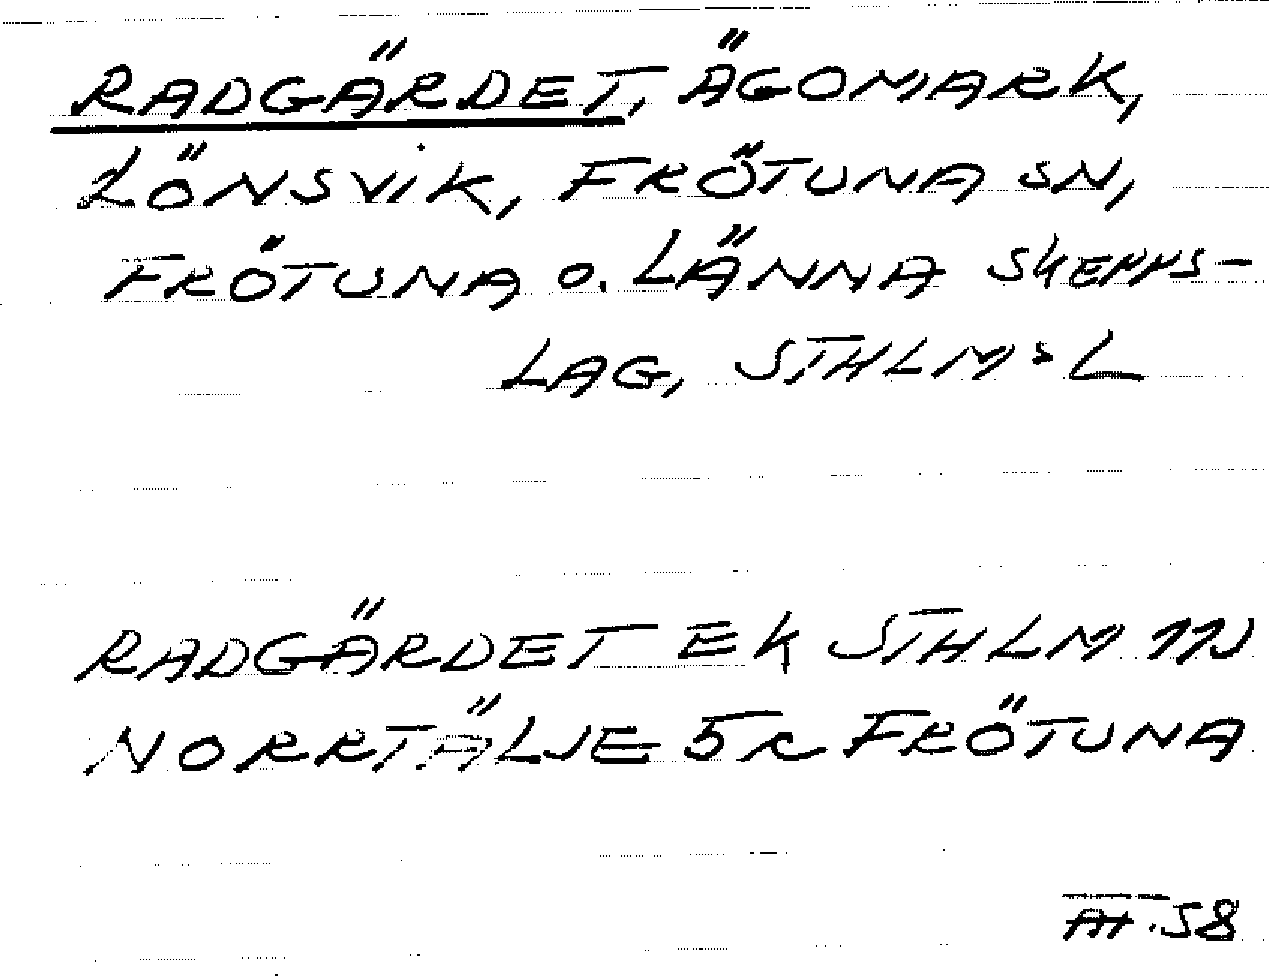 RADGÄRDET, ÄGOMARK,
LÖNSVIK, FRÖTUNA SN,
FRÖTUNA O. LÄNNA SKEPPS-
LAG, STHLM:S L
RADGÄRDET EK STHLM 11J
NORRTÄLJE 5R FRÖTUNA
.58